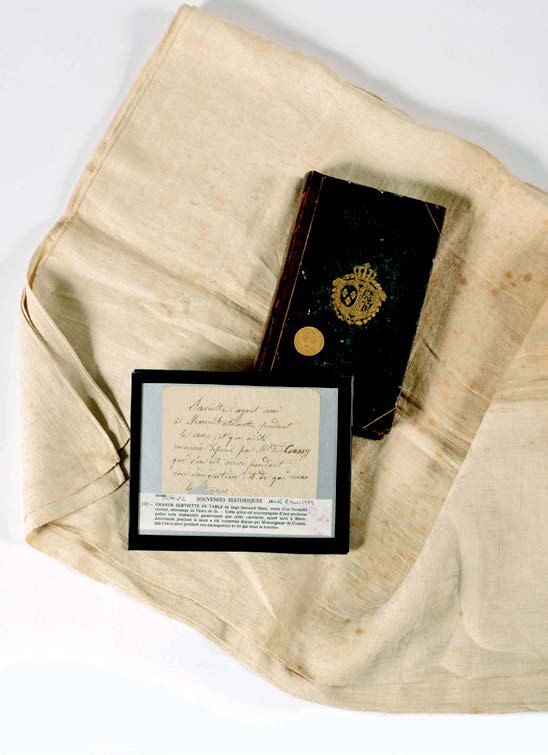 Serviette ayant servi
à Marie-Antoinette pendant
le sacre, et qui a été
conservée depuis par Mgr de Conzey
qui s'en est servi pendant
son émigration et de qui nous
la tenons
SOUVENIRS HISTORIQUES
131 — GRANDE SERVIETTE DE TABLE en linge damassé blanc, ornée d'un bouquet
central, encadrage de fleurs de lis. — Cette pièce est accompagnée d'une ancienne
petite note manuscrite garantissant que cette serviette, ayant servi à Marie-
Antoinette pendant le sacre a été conservée depuis par Monseigneur de Conzié,
qui s'en est servi pendant son émigration et de qui nous la tenons.